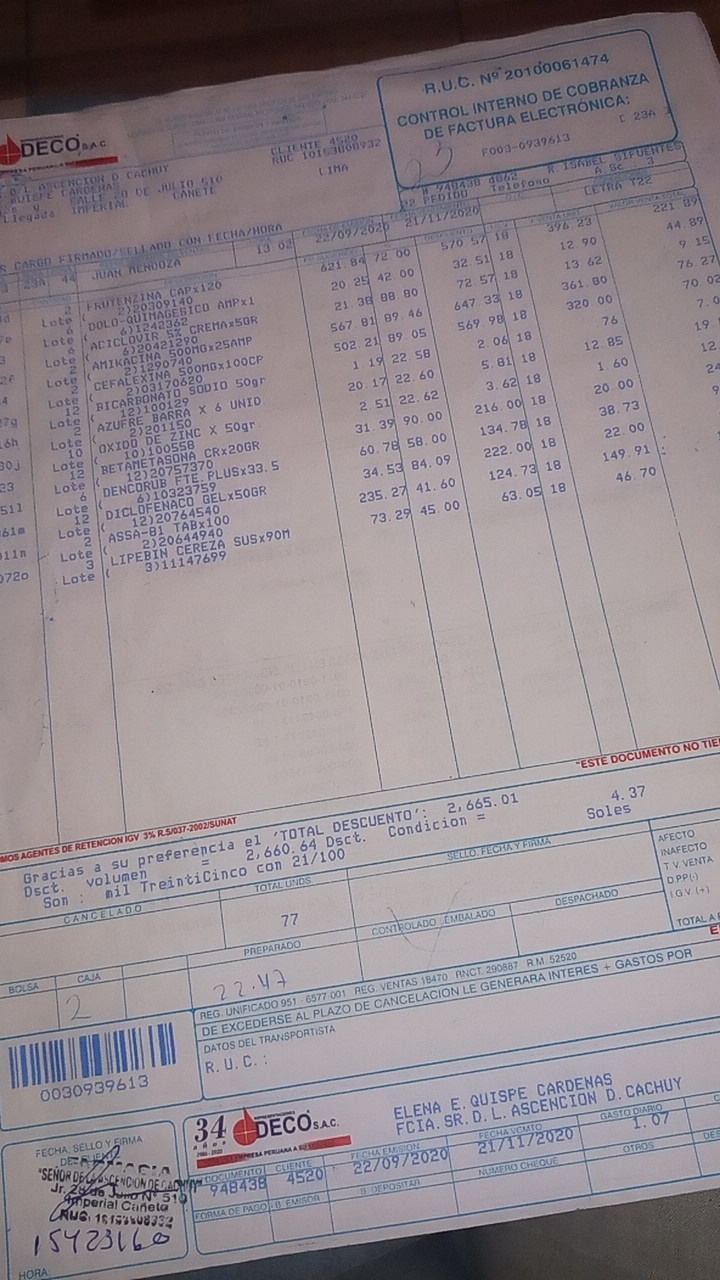 R.U.C. Nº 20100061474
CONTROL INTERNO DE COBRANZA
DE FACTURA ELECTRÓNICA:
F003-0939613
[ 23A ]
DECO S.A.C.
EMPRESA PERUANA A SU
CLIENTE 4520
LIMA
D L ASCENCION D CACHUY
QUISPE CARDENAS
CALLE 28 DE JULIO 510
Llegada IMPERIAL CAÑETE
R. ISABEL SIFUENTES
PEDIDO Telefono
LETRA T22
CARGO FIRMADO/SELLADO CON FECHA/HORA
13 02 22/09/2020 21/11/2020
23A 44 JUAN MENDOZA
2 FRUTENZINA CAPx120 621.84 72.00 570.57 18 396.23 221.89
Lote ( 2)20309140
6 DOLO-QUIMAGESICO AMPx1 20.25 42.00 32.51 18 12.90 44.89
Lote ( 6)1242362
6 ACICLOVIR 5% CREMAx5GR 21.38 88.80 72.57 18 13.62 9.15
Lote ( 6)20421290
2 AMIKACINA 500MGx25AMP 567.81 89.46 647.33 18 361.80 76.27
Lote ( 2)1290740
2 CEFALEXINA 500MGx100CP 502.21 89.05 569.98 18 320.00 70.02
Lote ( 2)03170620
12 BICARBONATO SODIO 50gr 1.19 22.58 2.06 18 76
Lote ( 12)100129
2 AZUFRE BARRA X 6 UNID 20.17 22.60 5.81 18 12.85
Lote ( 2)201150
10 OXIDO DE ZINC X 50gr 2.51 22.62 3.62 18 1.60
Lote ( 10)100558
12 BETAMETASONA CRx20GR 31.39 90.00 216.00 18 20.00
Lote ( 12)20757370
6 DENCORUB FTE.PLUSx33.5 60.78 58.00 134.78 18 38.73
Lote ( 6)10323759
12 DICLOFENACO GELx50GR 34.53 84.09 222.00 18 22.00
Lote ( 12)20764540
2 ASSA-81 TABx100 235.27 41.60 124.73 18 149.91
Lote ( 2)20644940
3 LIPEBIN CEREZA SUSx90M 73.29 45.00 63.05 18 46.70
Lote ( 3)11147699
"ESTE DOCUMENTO NO TIE
MOS AGENTES DE RETENCION IGV 3% R.S/037-2002/SUNAT
Gracias a su preferencia el 'TOTAL DESCUENTO': 2,665.01
Dsct. volumen = 2,660.64 Dsct. Condicion = 4.37
Son : mil TreintiCinco con 21/100 Soles
CANCELADO
TOTAL UNDS
77
SELLO, FECHA Y FIRMA
AFECTO
INAFECTO
T.V. VENTA
D.PP(-)
I.G.V. (+)
BOLSA
CAJA
2
PREPARADO
22.47
CONTROLADO EMBALADO
DESPACHADO
REG. UNIFICADO 951 - 6577 001 REG. VENTAS 18470 RNCT. 290887 R.M. 52520
DE EXCEDERSE AL PLAZO DE CANCELACION LE GENERARA INTERES + GASTOS POR
DATOS DEL TRANSPORTISTA
R.U.C.:
0030939613
34 años
DECO S.A.C.
EMPRESA PERUANA A SU
ELENA E. QUISPE CARDENAS
FCIA. SR. D. L. ASCENCION D. CACHUY
DOCUMENTO 948438
CLIENTE 4520
FECHA EMISION 22/09/2020
FECHA VCMTO 21/11/2020
GASTO DIARIO 1.07
FORMA DE PAGO
B. EMISOR
B. DEPOSITAR
NUMERO CHEQUE
OTROS
FECHA, SELLO Y FIRMA
"SEÑOR DE LA ASCENCION DE CACHUY"
Jr. 28 de Julio Nº 510
Imperial Cañete
15423160
HORA: